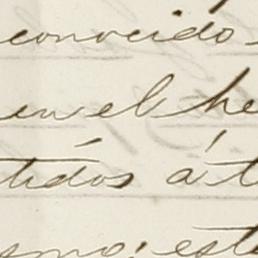 conocido
en el he
tidos á t
smo; est